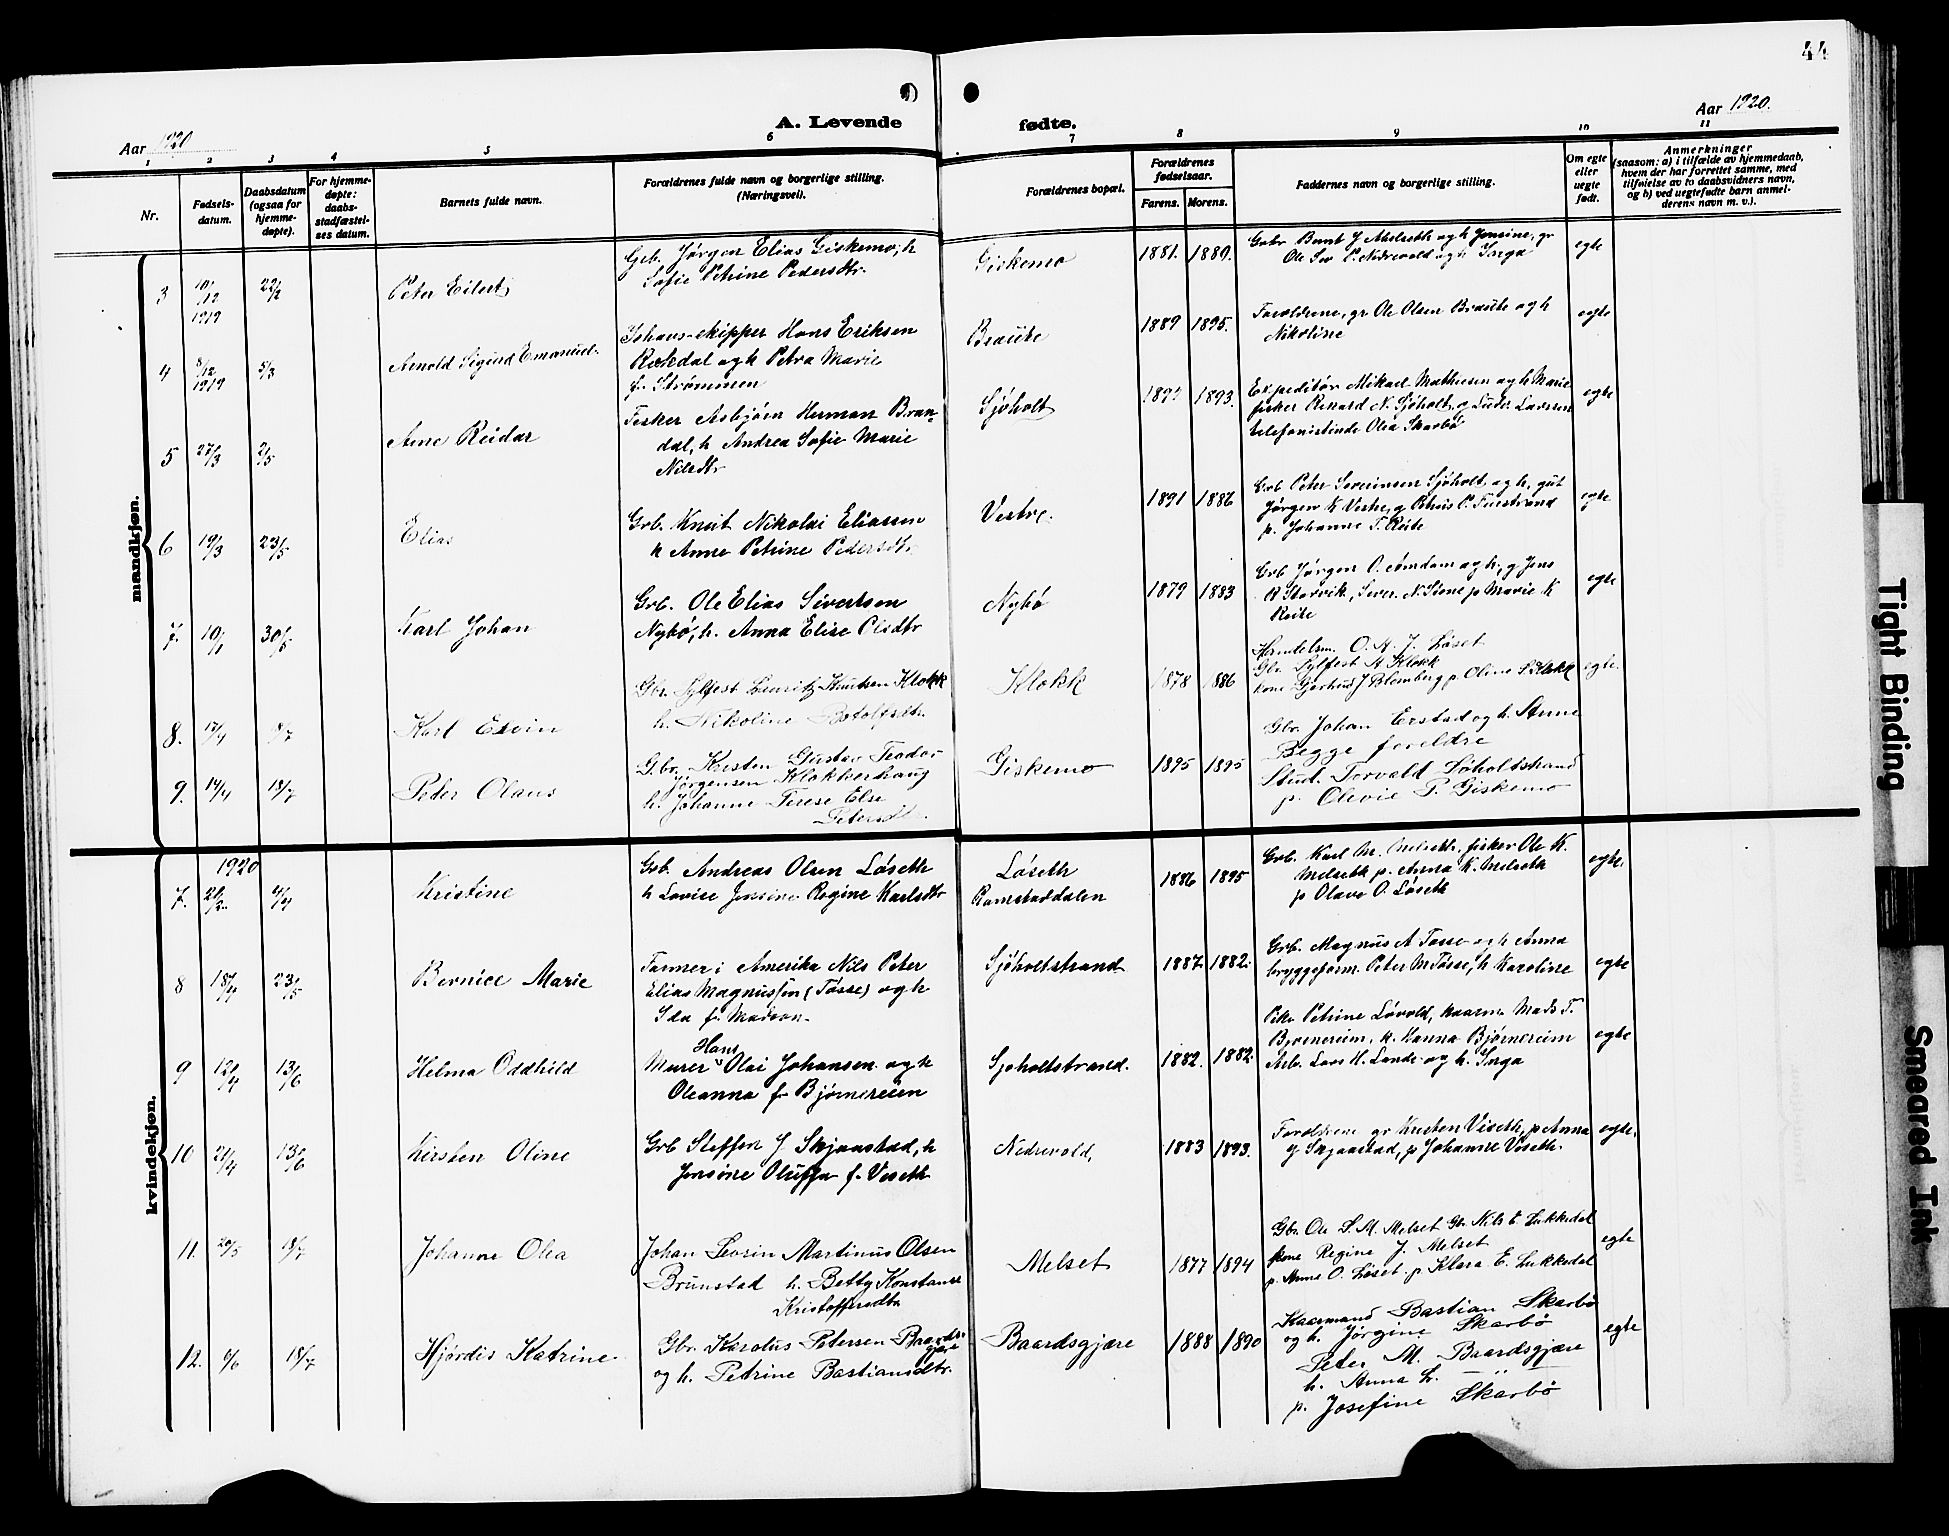 44
Aar 1920
A. Levende fødte.
Aar 1920.
1 2 3 4 5 6 7 8 9 10 11
Nr.
Fødsels-
datum.
Daabsdatum
(ogsaa for
hjemme-
døpte).
For hjemme-
døpte:
daabs-
stadfæstel-
ses datum.
Barnets fulde navn.
Forældrenes fulde navn og borgerlige stilling.
(Næringsvei).
Forældrenes bopæl.
Forældrenes
fødselsaar.
Farens. Morens.
Faddernes navn og borgerlige stilling.
Om egte
eller
uegte
født.
Anmerkninger
(saasom: a) i tilfælde av hjemmedaab,
hvem der har forrettet samme, med
tilføielse av to daabsvidners navn,
og b) ved uegtefødte barn anmel-
derens navn m. v.).
mandkjøn.
3 10/12 1919 22/2 Peter Eilert
Grb. Jørgen Elias Giskemo, h
Sofie Petrine Pedersdtr.
Giskemo 1881. 1889.
Gbr Bernt J Akslseth og h Jensine, gr
Ole Sev P. Nedrevold og h Inga
egte
4 8/12 1919 5/3 Arnold Sigurd Emanuel
Ishavs-skipper Hans Eriksen
Rekdal og h Petra Marie
f. Strømmen
Braute 1889 1895.
Forældrene, gr Ole Olsen Braute og h
Nikoline
egte
5 27/3 2/5 Arne Reidar
Fisker Asbjørn Herman Bran-
dal, h Andrea Sofie Marie
Nilsdtr
Sjøholt 1893.
Expeditør Mikael Mathisen og h Marie
fisker Rikard N. Sjøholt, g Luder Larssen
telefonistinde Olea Skarbø
egte
6 19/3 23/5 Elias
Grb. Knut Nikolai Eliassen
h Anne Petrine Pedersdtr.
Vestre. 1891 1886
Grb Peter Severinsen Sjøholt og h, gut
Jørgen K Vestre, g Petrus P. Fuestrand
p. Johanne T. Reite
egte
7. 10/1 30/5 Karl Johan
Grb. Ole Elias Sivertsen
Nybø, h. Anna Elise Olsdtr
Nybø 1879 1883
Grb Jørgen O. Amdam og h, g Jens
A Storvik, Siver. N. Stene p Marie K
Reite
egte
8. 17/4 4/7 Karl Edvin
Gbr. Sylfest Lauritz Knutsen Klokk
h. Nikoline Botolfsdtr.
Klokk 1878 1886
Handelsm. O. A. J. Løset
Gbr. Sylfest A Klokk
kone Gjertrud J Blomberg p. Oline S Klokk
egte.
9. 14/4 18/7 Peter Olaus
Gbr. Kristen Gustav Teodor
Jørgensen Klokkerhaug
h. Johanne Terese Else
Petersdt.
Giskemo 1895 1895
Gbr. Johan Erstad og h. Anne
Begge foreldre
Stud. Torvald Sjøholtstrand
p. Olevie P. Giskemo
kvindekjøn.
1920
7. 21/2 4/4 Kristine
Grb. Andreas Olsen Løseth
h Lovise Jensine Regine Karlsdtr
Løseth
Ramstaddalen
1886 1895
Grb. Karl M. Melseth, fisker Ole K.
Melseth p. Anna K. Melseth
p Olave O. Løseth
egte.
8 18/4 23/5 Bernice Marie
Farmer i Amerika Nils Peter
Elias Magnussen (Tøsse) og h
Ida f. Madson.
Sjøholtstrand 1887 1882.
Grb. Magnus A Tøsse og h Anna
bryggeform. Peter M Tøsse, h Karoline
egte
9 12/4 13/6 Helma Oddhild
Murer Hans Olai Johansen og h
Oleanna f. Bjørnereim
Sjøholtstrand. 1882. 1882.
Pike Petrine Løvold, kaarm Mads T.
Bjørnereim, k. Hanna Bjørnereim
Arb. Lars H. Lande og h. Inga
egte
10 21/4 13/6 Kirsten Oline
Grb Steffen J Skjaastad, h
Jensine Oluffa f. Viseth
Nedrevold, 1883 1893.
Forældrene gr Kristen Viseth, p Anna
J Skjaastad, p Johanne Viseth.
egte.
11. 20/5 18/7 Johanne Olea
Johan Severin Martinus Olsen
Brunstad h. Betty Konstanse
Kristoffersdtr
Melset 1877 1894
Gbr. Ole S. M. Melset Gbr. Nils E. Lukkedal
kone Regine J. Melset
p. Anne O. Løset. p Klara E. Lukkedal
egte
12. 6/6 18/7 Hjørdis Katrine
Gbr. Karolus Petersen Baards-
gjære
og h. Petrine Bastiansdtr.
Baardsgjære 1888 1890
Kaarmand Bastian Skarbø
og h. Jørgine Skarbø
Peter M. Baardsgjære
h. Anna L. — " —
p. Josefine Skarbø
egte
Tight Binding
Smeared Ink